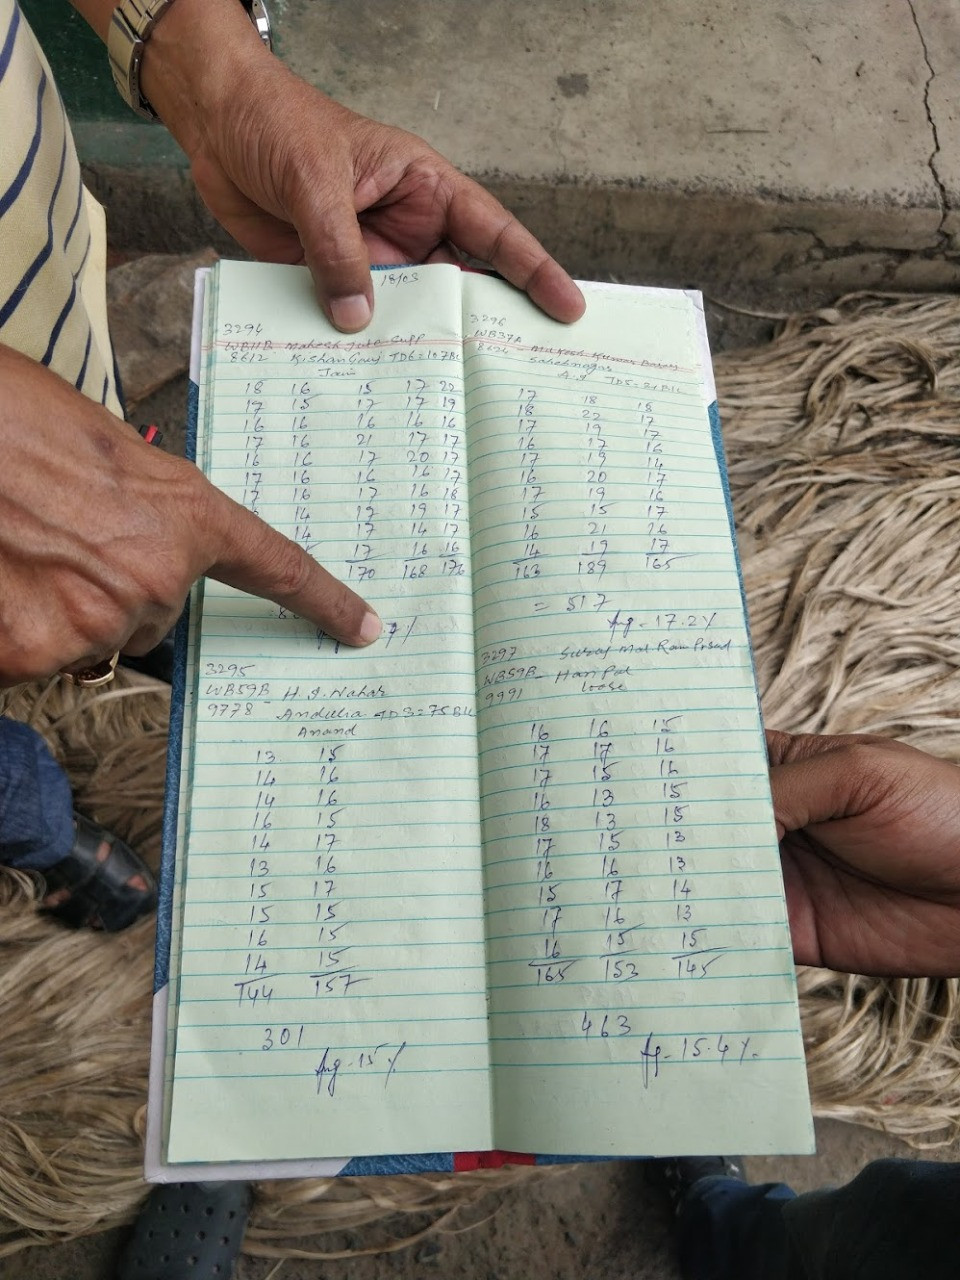 18/03
3294
WB11B Mahesh
8612 TD6=107BL
Jain
18 16 15 17 22
17 15 17 17 19
16 16 16 16 16
17 16 21 17 17
16 16 17 20 17
17 16 16 16 17
17 16 17 16 18
14 17 19 17
14 17 14 17
17 16 16
170 168 176
3295
WB59B - H.S. Nahar
9778 Andulia TD3=75BL
Anand
13 15
14 16
14 16
16 15
14 17
13 16
15 17
15 15
16 15
14 15
144 157
301
Avg - 15%
3296
WB37A
8624 - Kumar
Sahebnagar
TD5=21BL
17 18 18
18 22 17
17 19 17
16 17 16
17 19 14
16 20 17
17 19 16
15 15 17
16 21 16
14 19 17
163 189 165
= 517
Avg - 17.2%
3297 Suraj Mal Ram Prasad
WB59B - Hari Pal
9991 loose
16 16 15
17 17 16
17 15 16
16 13 15
18 13 15
17 15 13
16 16 13
15 17 14
17 16 13
16 15 15
165 153 145
463
Avg - 15.4%